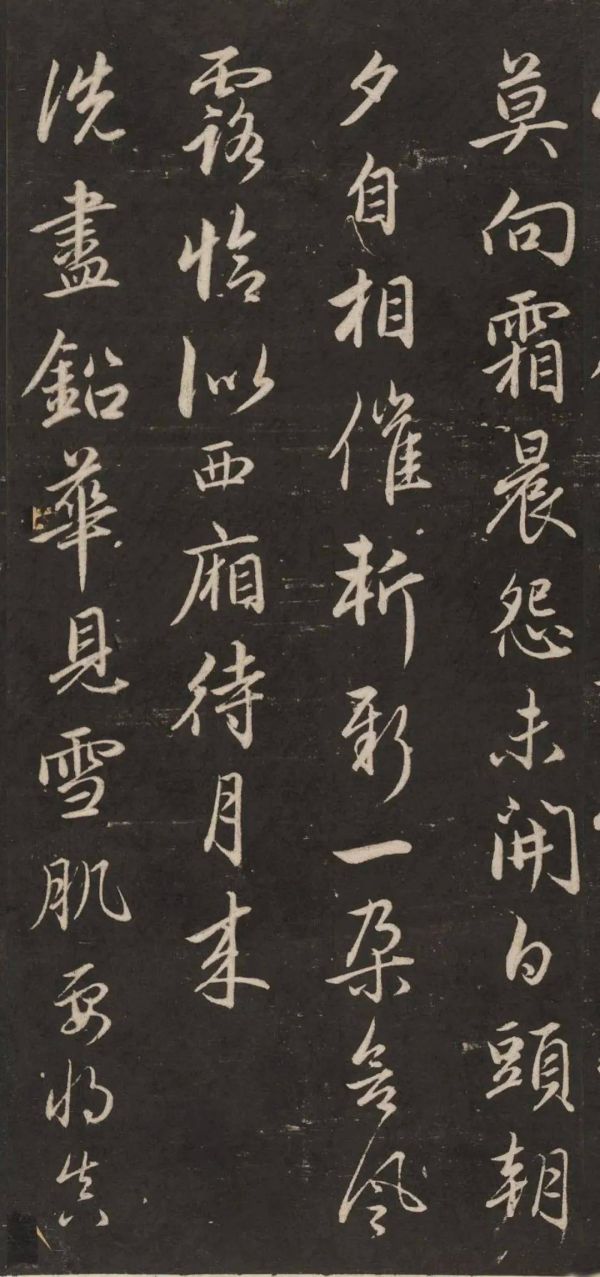 莫向霜晨怨未開白頭朝
夕自相催斬新一朶含風
露恰似西廂待月來
洗盡鉛華見雪肌要將真